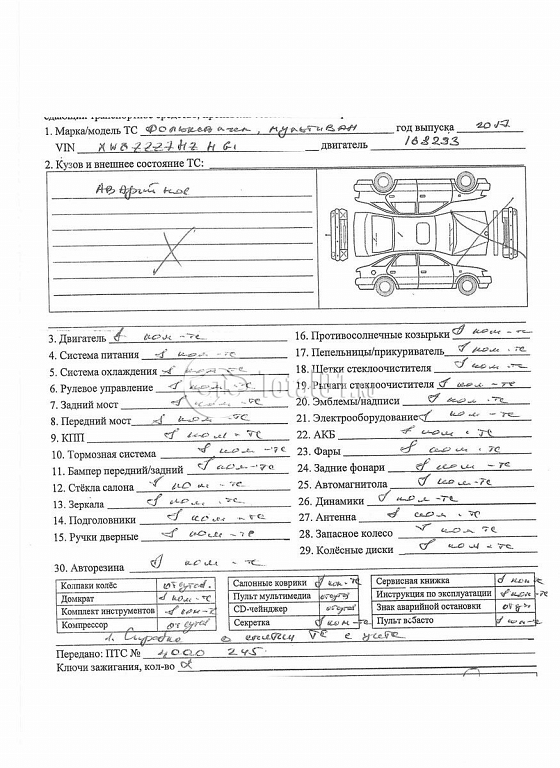 1. Марка/модель ТС Фольксваген, мультивен год выпуска 2017
VIN двигатель 108293
2. Кузов и внешнее состояние ТС:
Аварийное
3. Двигатель в ком-те
4. Система питания в ком-те
5. Система охлаждения в ком-те
6. Рулевое управление в ком-те
7. Задний мост в ком-те
8. Передний мост в ком-те
9. КПП в ком-те
10. Тормозная система в ком-те
11. Бампер передний/задний в ком-те
12. Стёкла салона в ком-те
13. Зеркала в ком-те
14. Подголовники в ком-те
15. Ручки дверные в ком-те
16. Противосолнечные козырьки в ком-те
17. Пепельницы/прикуриватель в ком-те
18. Щетки стеклоочистителя в ком-те
19. Рычаги стеклоочистителя в ком-те
20. Эмблемы/надписи в ком-те
21. Электрооборудование в ком-те
22. АКБ в ком-те
23. Фары в ком-те
24. Задние фонари в ком-те
25. Автомагнитола в ком-те
26. Динамики в ком-те
27. Антенна в ком-те
28. Запасное колесо в ком-те
29. Колёсные диски в ком-те
30. Авторезина в ком-те
Колпаки колёс отсутств.
Домкрат в ком-те
Комплект инструментов в ком-те
Компрессор отсутств
Салонные коврики в ком-те
Пульт мультимедиа отсутв
CD-чейнджер отсутв
Секретка в ком-те
Сервисная книжка в ком-те
Инструкция по эксплуатации в ком-те
Знак аварийной остановки
Пульт вебасто в ком-те
1. Справка о снятии ТС с учета
Передано: ПТС № 4000 245
Ключи зажигания, кол-во 2